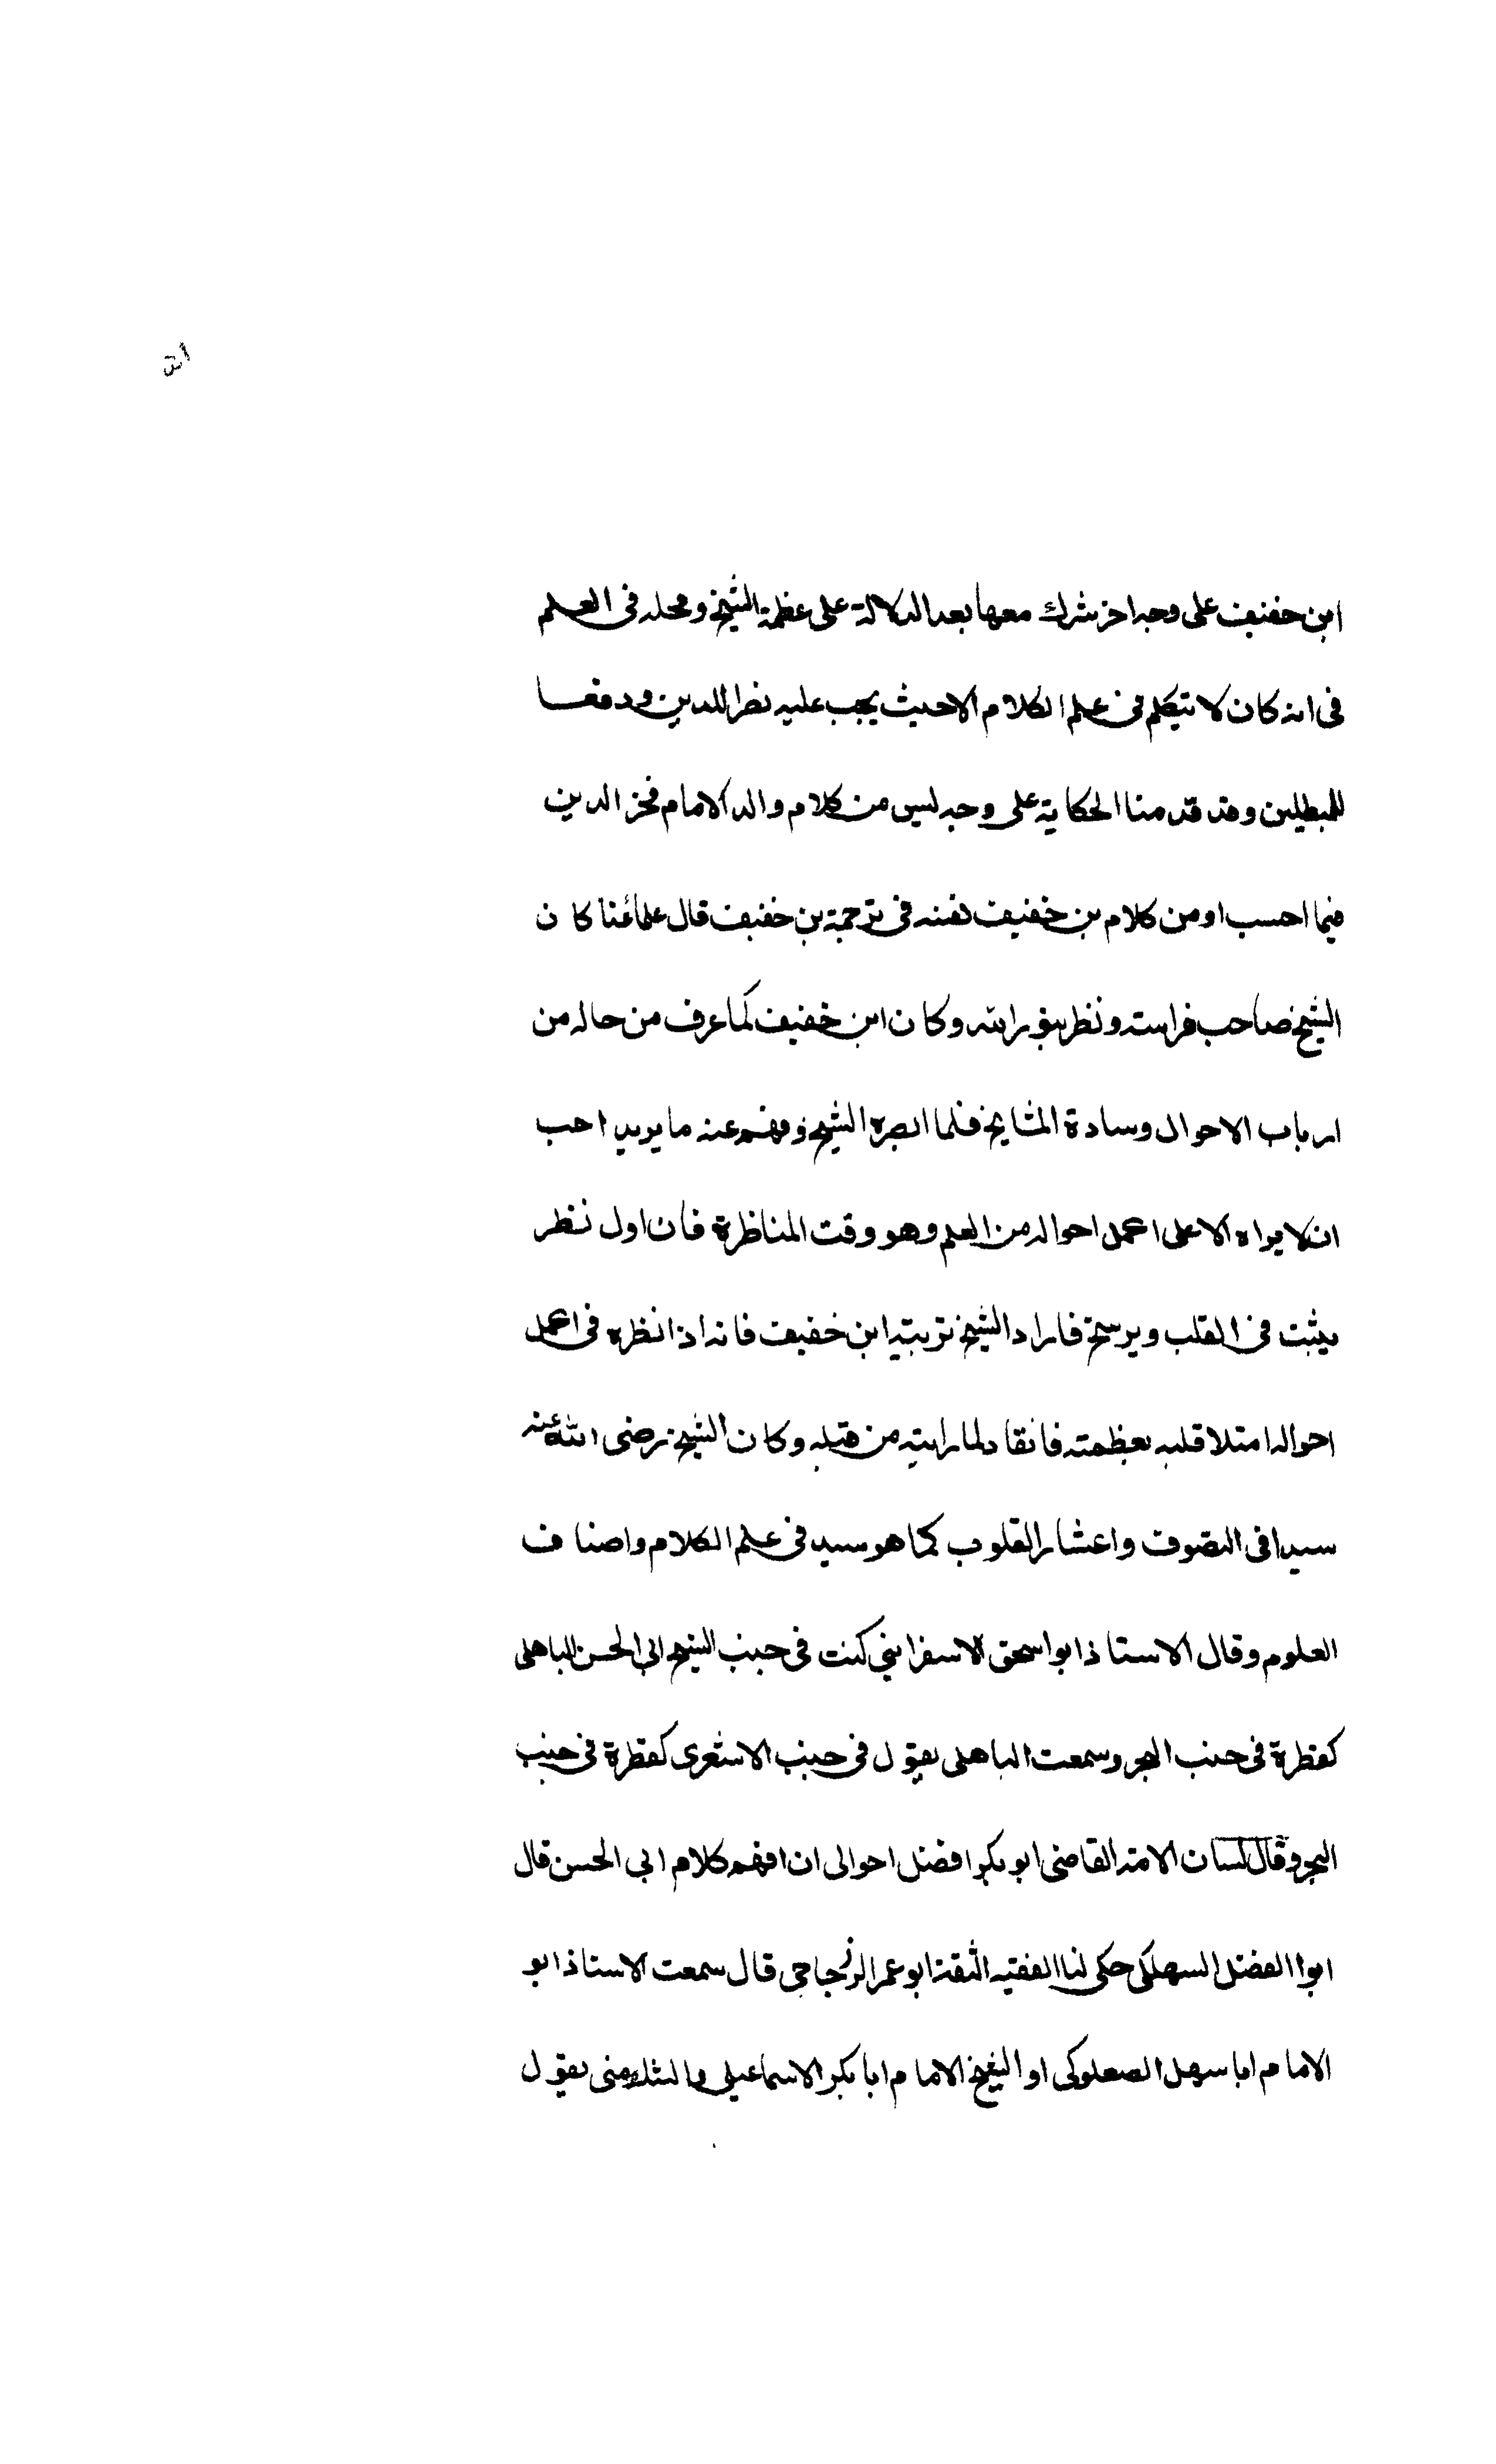 ابن خفيف على وجه اخر يشرك معها بعد الدلالة على عظمة الشيخ ومحله فى العلم
فى انه كان لا يتكلم فى علم الكلام الا حيث يجب عليه نظرا للدين ودفعا
للمبطلين وقد قدمنا الحكاية على وجه ليس من كلام والد الامام فخر الدين
فيما احسب او من كلام بن خفيف نفسه فى ترجمة بن خفيف قال علمائنا كان
الشيخ صاحب فراسته ونظر بنور الله وكان ابن خفيف كما عرف من حاله من
ارباب الاحوال وسادة المشايخ فلما ابصره الشيخ وفهم عنه ما يريد احب
ان لا يراه الا على اكمل احواله من العلم وهو وقت المناظرة فان اول نظر
يثبت فى القلب ويرسخ فاراد الشيخ تربية ابن خفيف فانه اذا نظره فى اكمل
احواله امتلا قلبه بعظمته فانقاد لما ياتيه من قبله وكان الشيخ رضى الله عنه
سيدا فى التصوف واعتبار القلوب كما هو سيد فى علم الكلام واصناف
العلوم وقال الاستاذ ابو اسحق الاسفراينى كنت فى جنب الشيخ ابى الحسن الباهلى
كقطرة فى جنب البحر وسمعت الباهلى يقول فى جنب الاشعرى كقطرة فى جنب
البحر وقال لسان الامة القاضى ابو بكر افضل احوالى ان افهم كلام ابى الحسن قال
ابو الفضل السهلكى حكى لنا الفقيه الثقة ابو عمر الرزجاجى قال سمعت الاستاذ ابو
الامام ابا سهل الصعلوكى او الشيخ الامام ابا بكر الاسماعيلى والشك منى يقول